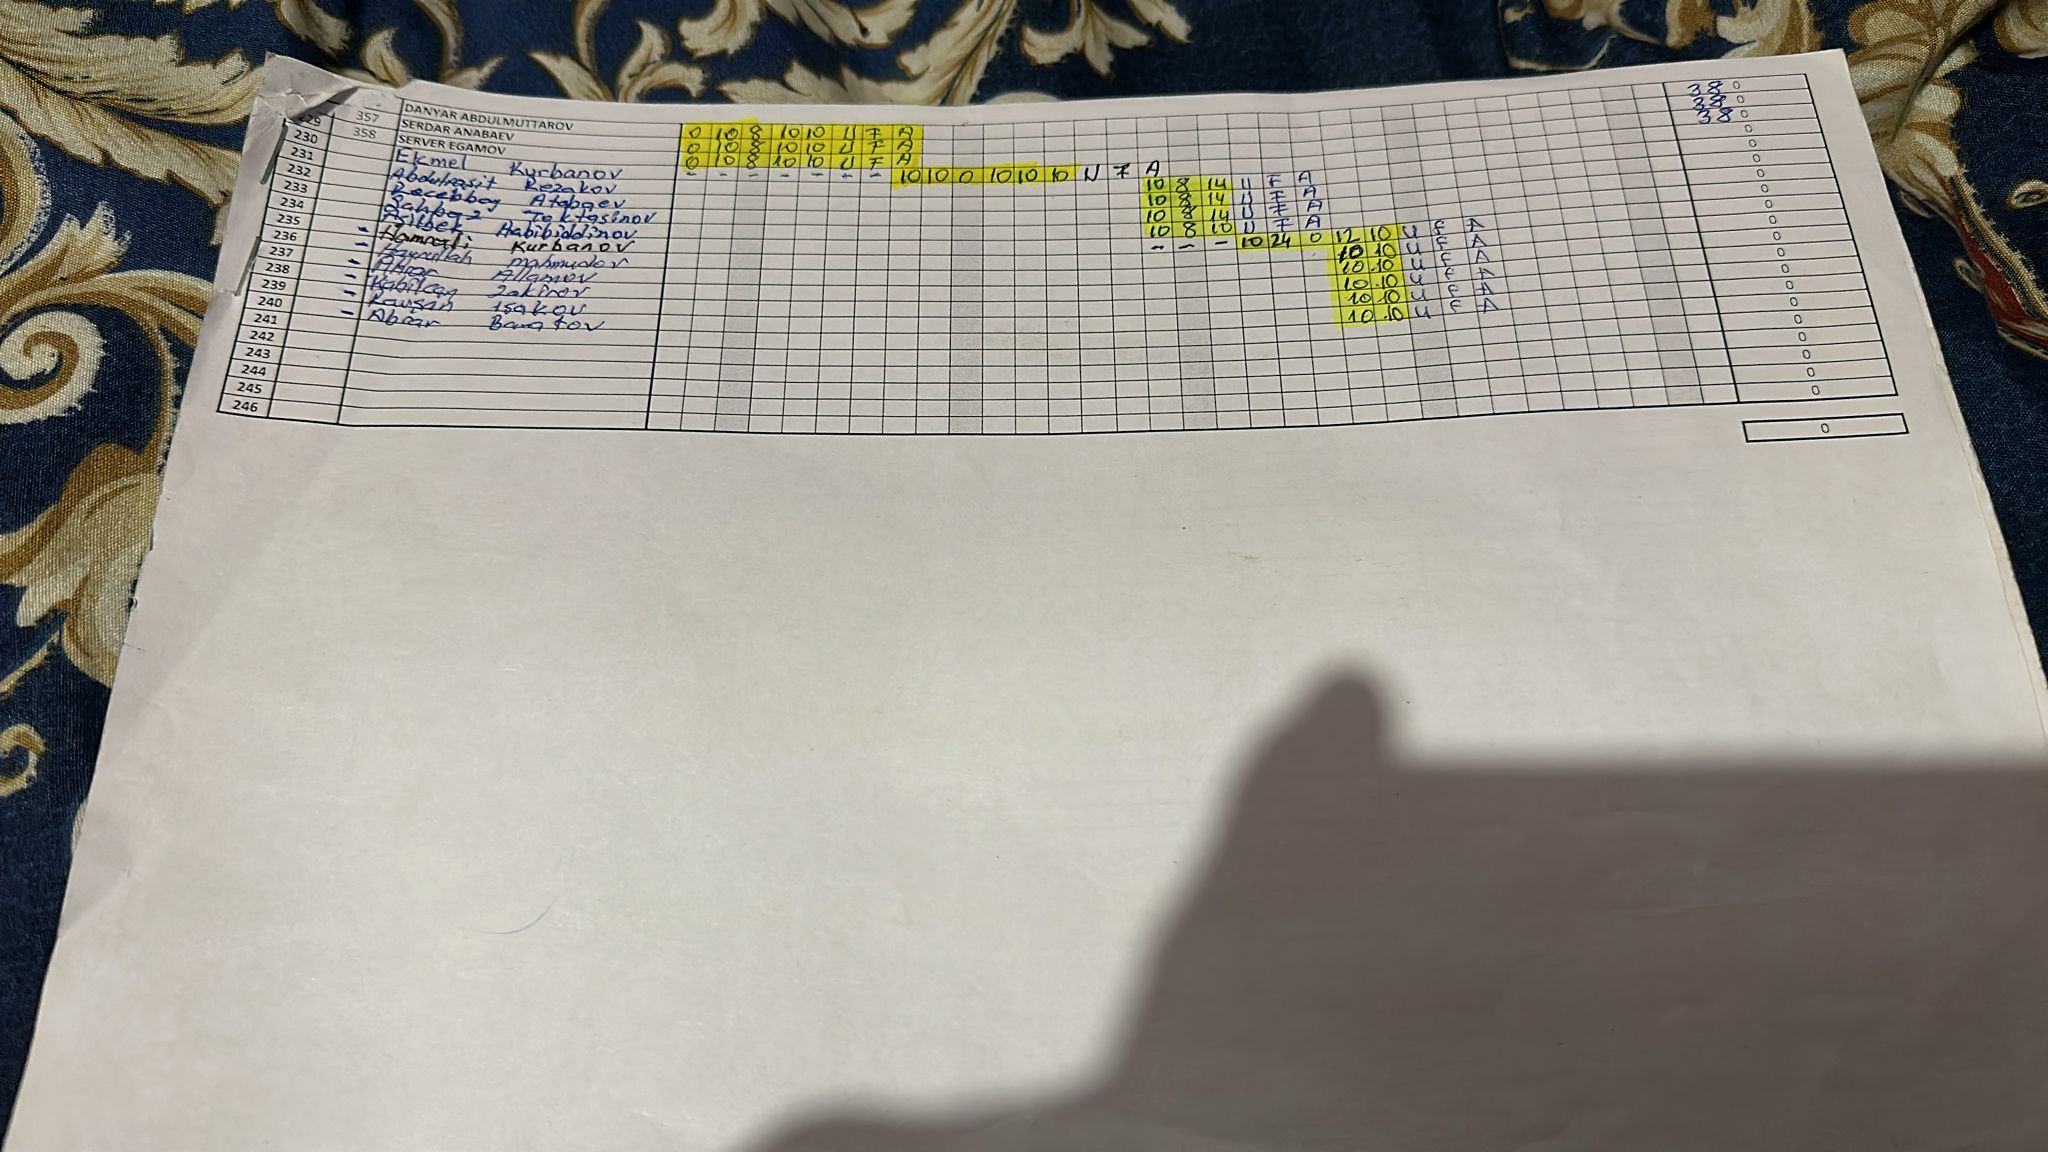 DANYAR ABDULMUTTAROV 38 0
229 357 SERDAR ANABAEV 0 10 8 10 10 U F A 38 0
230 358 SERVER EGAMOV 0 10 8 10 10 U F A 38 0
231 Ekmel Kurbanov 0 10 8 10 10 U F A 0
232 Abdulrasit Rezakov - - - - - - - 10 10 0 10 10 10 U F A 0
233 Recepbay Atabaev 10 8 14 U F A 0
234 Sahbaz Toktasinov 10 8 14 U F A 0
235 Adilbek Habibiddinov 10 8 14 U F A 0
236 - Hamrali Kurbanov 10 8 10 U F A 0
237 - Hayrullah mahmudov - - - 10 24 0 12 10 U F A 0
238 - Ahrar Allamov 10 10 U F A 0
239 - Kabilcan Zakirov 10 10 U F A 0
240 - Kavsan Isakov 10 10 U F A 0
241 - Abrar Baratov 10 10 U F A 0
242 10 10 0
243 0
244 0
245 0
246
0